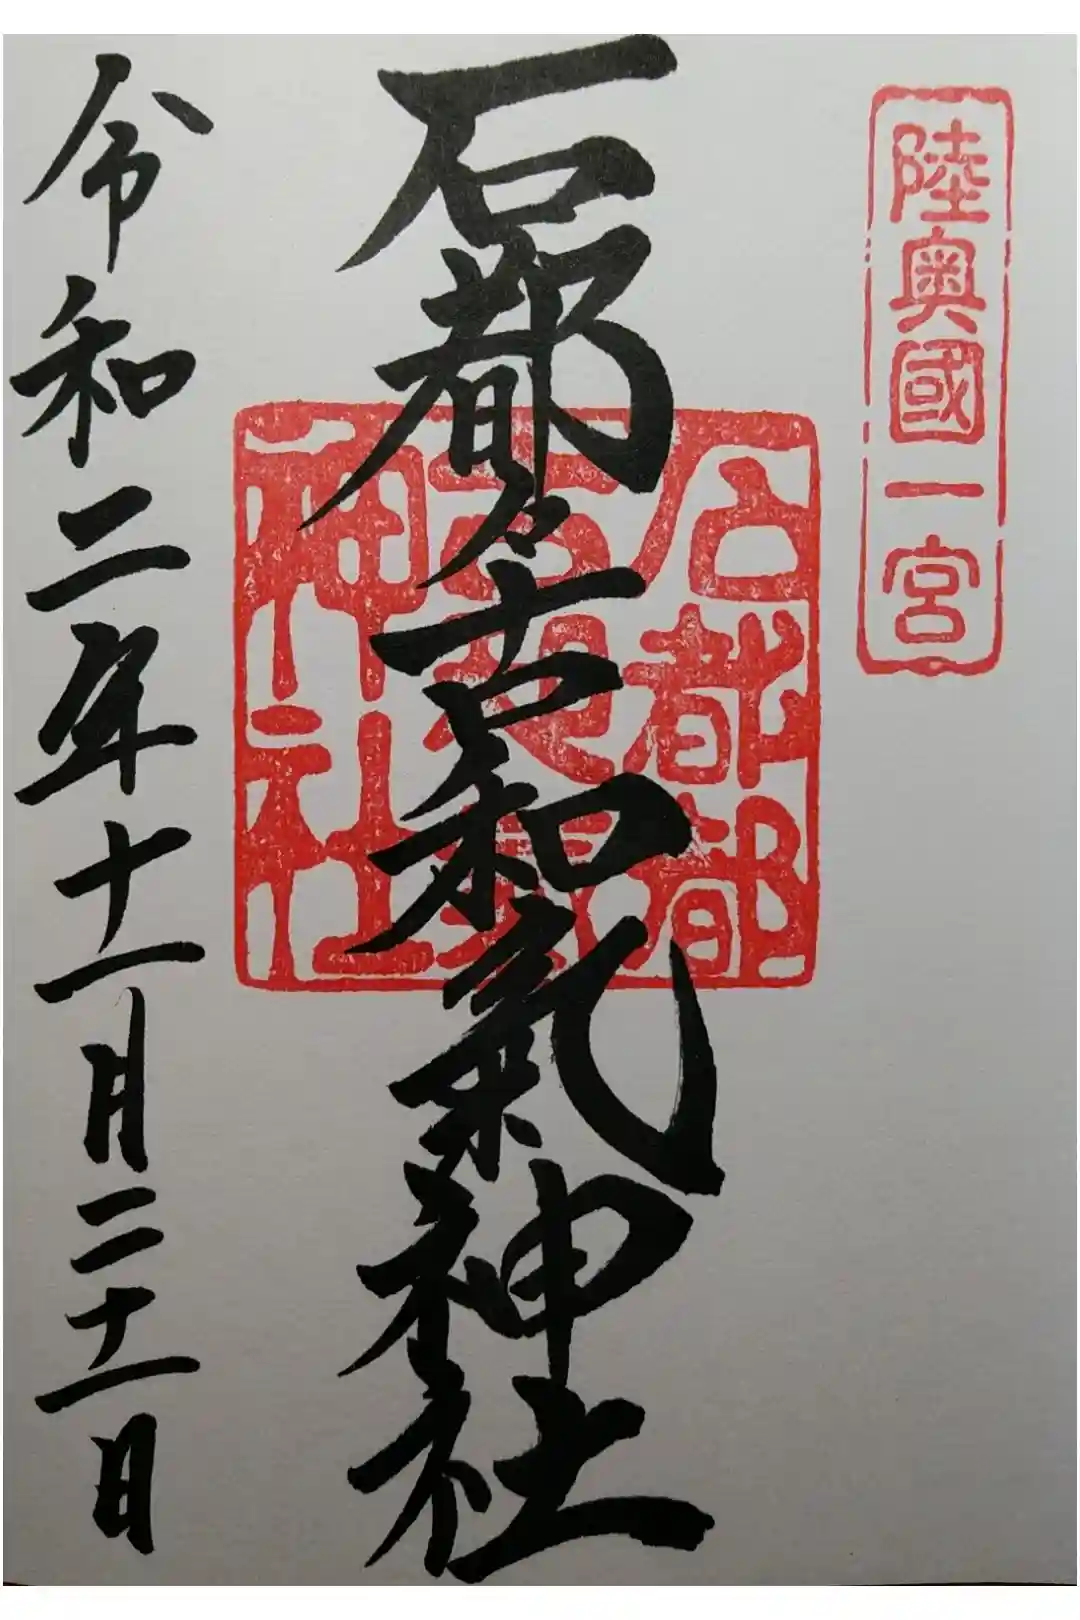 陸奥國一宮
石都々古和氣神社
石都都古和氣神社
令和二年十一月二十一日